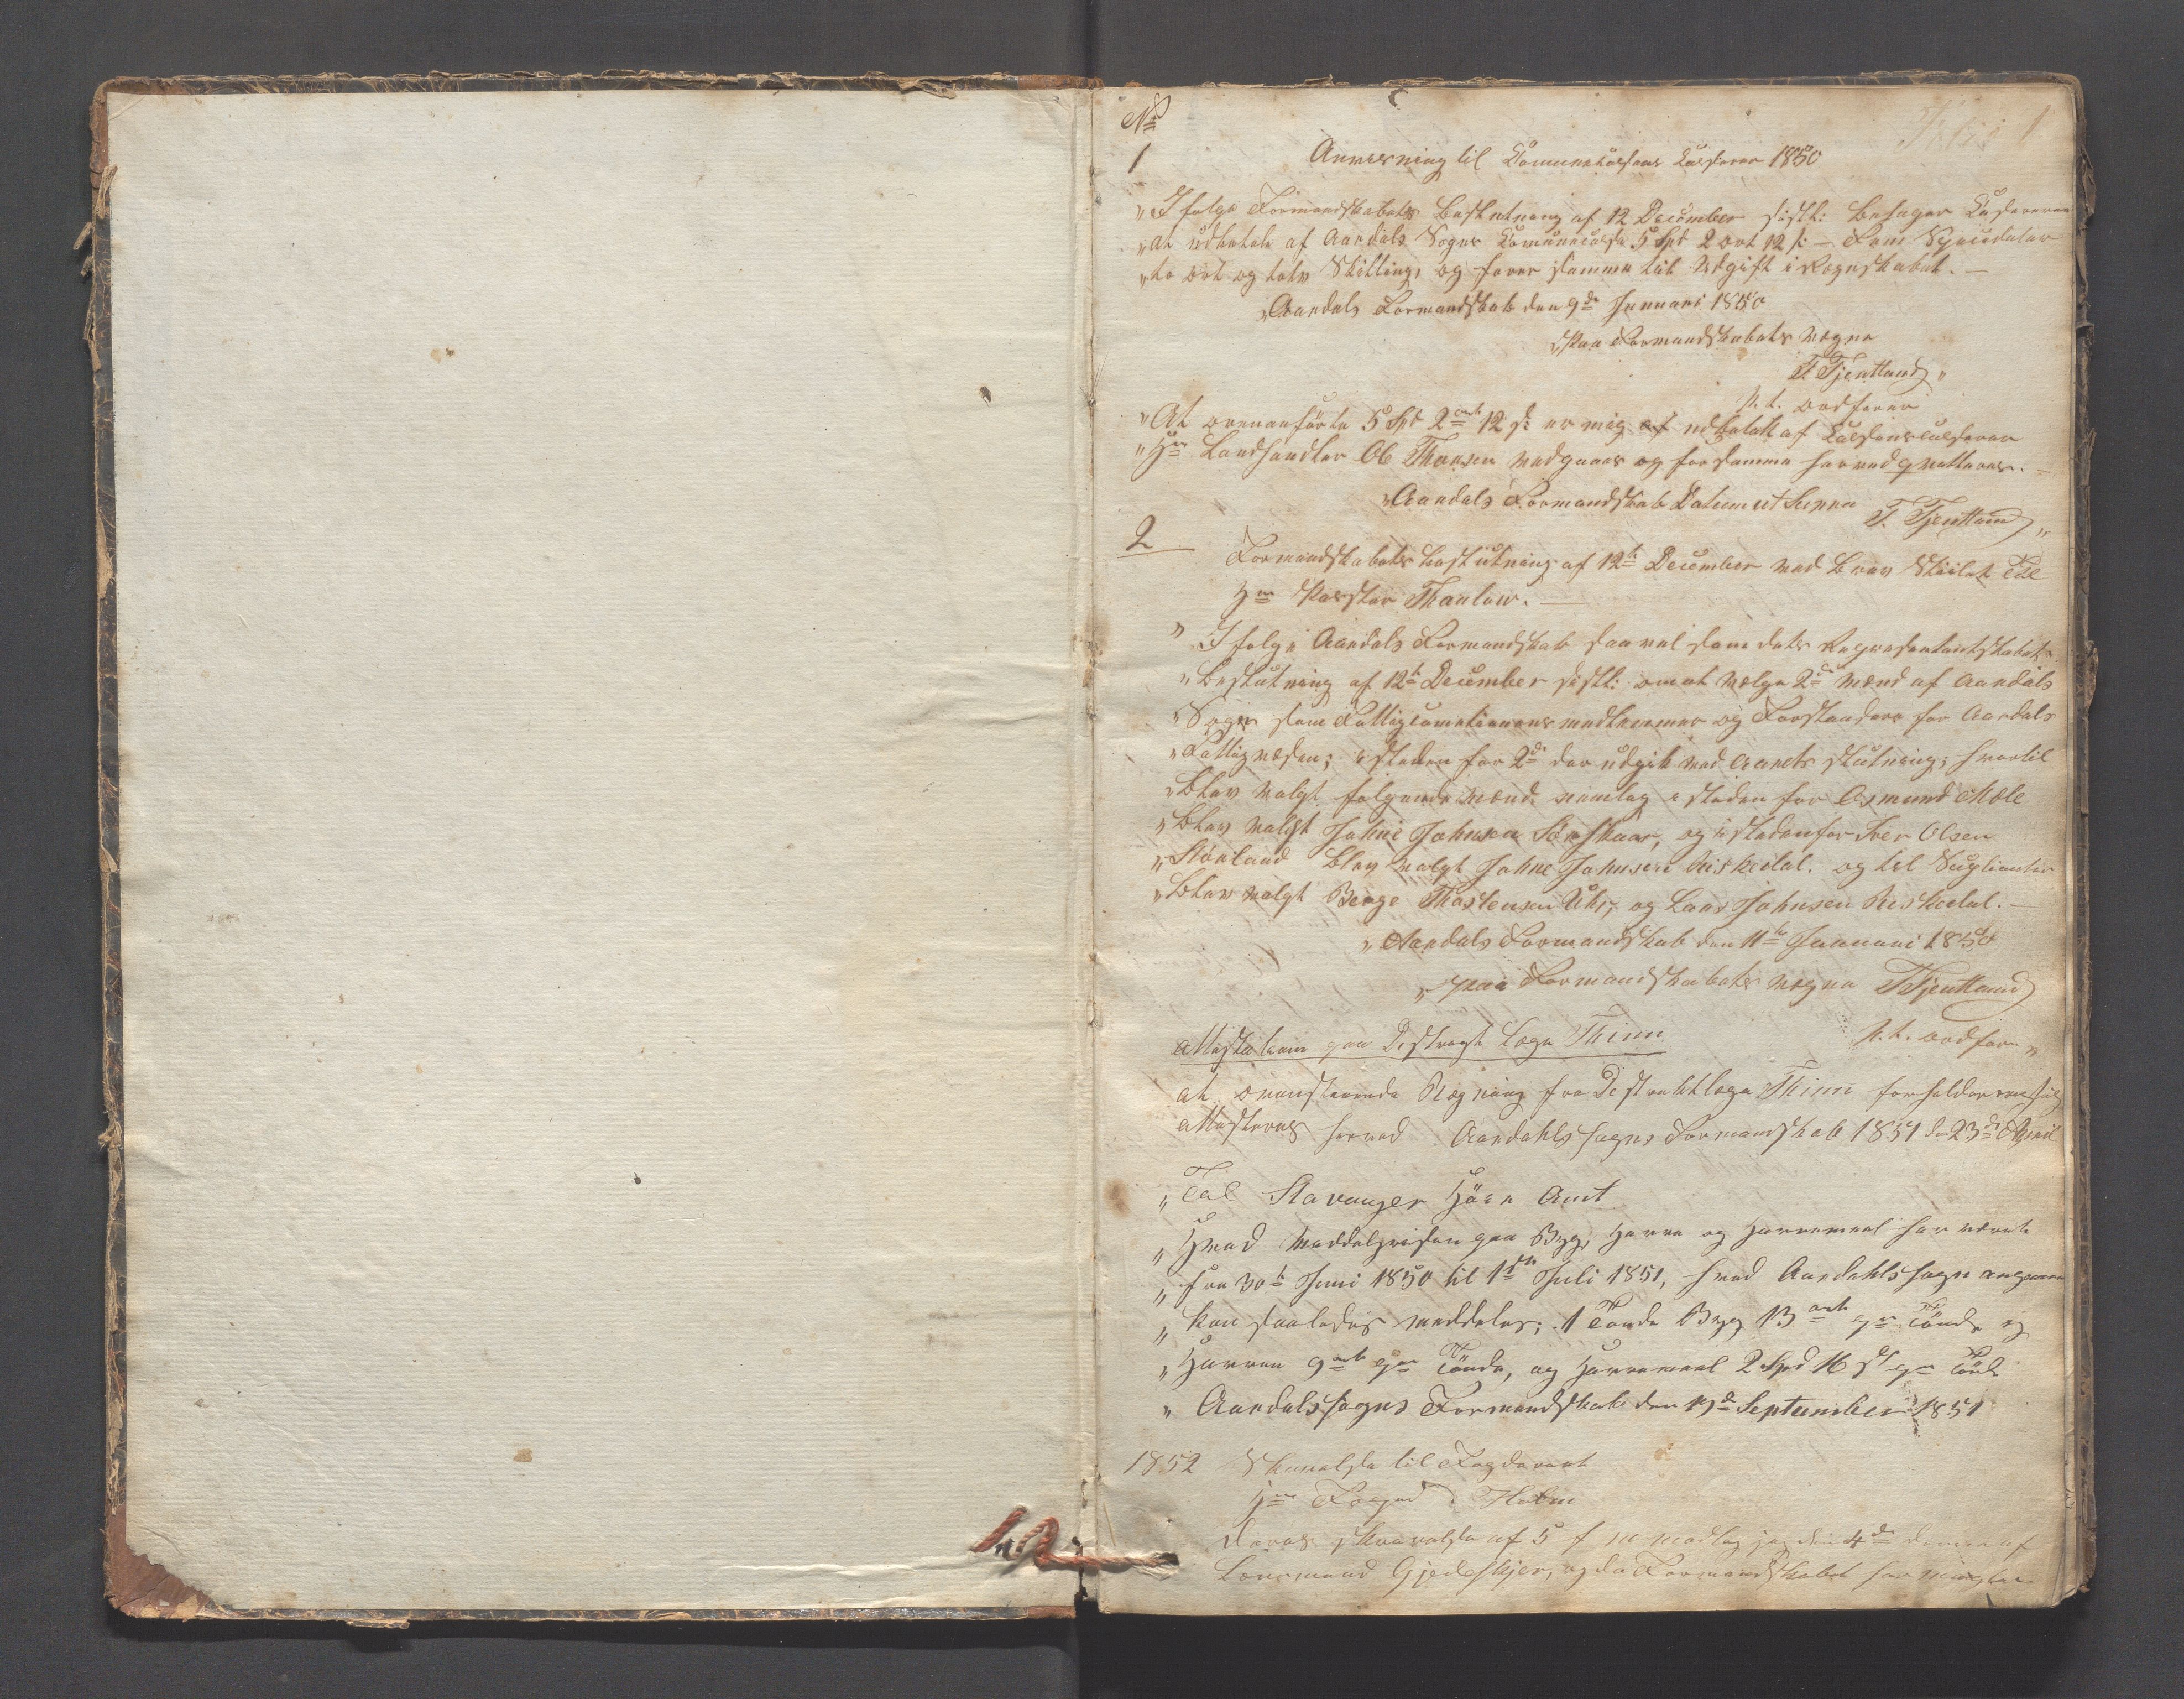 No
Folio 1
1
Anviisning til Communekassens Kasserer 1850
"Ifølge Formandskabets Beslutning af 12 December sidstl: behager Kassereren
"at udbetale af Aardals Sogns Communecasse 5 Spd 2 ort 12 s: – Fem Speciedaler
"to ort og tolv Skilling, og fører samme til Udgift i Regnskabet. –
"Aardals Formandskab den 9de Januari 1850
"Paa Formandskabets Vegne
T Tjentland"
p.t. ordfører
"At ovenanførte 5 Spd 2 ort 12 s: er mig udbetalt af Cassens casserer
"Hrr Landhandler Ol Thorsen vedgaaes og for samme herved qvitteres. –
"Aardals Formandskab Datum ut Supra T. Tjentland"
2
Formandskabets beslutning af 12te December med Brev Skrivelse Til
Hrr Pastor Thaulow. –
"Ifølge Aardals Formandskab saavel som dets Repræsentantskabets
"Beslutning af 12te December sidstl: om at vælge 2de mænd af Aardals
"Sogn som Fattigcomisionens medlemmer og Forstandere for Aardals
"Fattigvæsen; i steden for 2de der udgik ved Aarets slutning; hvortil
"Blev valgt følgende mænd nemlig i steden for Osmund Mæle
"blev valgt Johne Johnsen Sørskaar, og i stedenfor Iver Olsen
"Størland blev valgt Johne Johnsen Riskedal. og til Suplianter
"blev valgt Berge Thostensen Uhr, og Lars Johnsen Riskedal. –
"Aardals Formandskab den 11te Januari 1850
"paa Formandskabets Vegne TTjentland
p.t. ordfører"
Attestation paa Distrigt Læge Thinn
at ovenstaaende Regning fra Distriktlæge Thinn forholder sig
attesteres herved Aardahls sogns Formandskab 1851 d 23de April
"Til Stavanger Höie Amt
"Hvad Meddelprisen paa Byg, Havre og Havremeel har været
"fra 30te Juni 1850 til 1ste Juli 1851, hvad Aardahls sogn angaaer
"kan saaledes meddeles; 1 Tønde Byg 13 ort pr Tönde og
"Havren 9 ort pr Tönde, og Havremeel 2 Spd 16 s pr Tönde
"Aardals sogns Formandskab den 19de September 1851
1852 Skrivelse til Fogderiet
Hrr Foged Holm
Deres skrivelse af 5 f m modtog jeg den 4de af
Lensmand Gjedeskjer, og da Formandskabet har